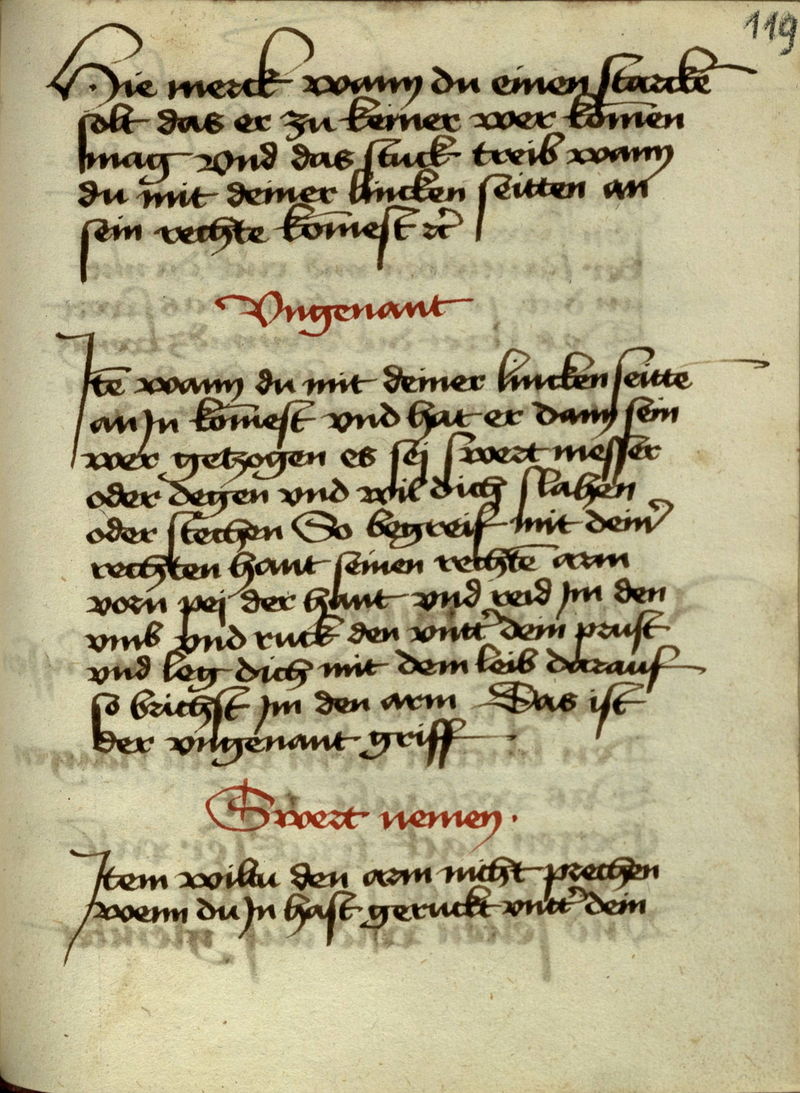 119
Hie merck wann du einen starckē
solt das er zu keiner wer kom̄en
mag vnd das stuck treib wann
du mit deiner lincken seitten an
sein rechte kom̄est ꝛc̄
Vngenant
Itē wann du mit deiner lincken seittē
an Jn kom̄est vnd hat er dann sein
wer getzogen es sej swert messer
oder degen vnd wil dich slahen
oder stechen So begreif mit deinʾ
rechten hant seinen rechtē arm
vorn pej der hant vnd reid Jm den
vmb vnd ruck den vnttʾ dein prust
vnd leg dich mit dem leib darauf
so brichst Jm den arm Das ist
der vngenant griff
Swert nemen .
Item wiltu den arm nicht prechen
wenn du Jn hast geruckt vnttʾ dein